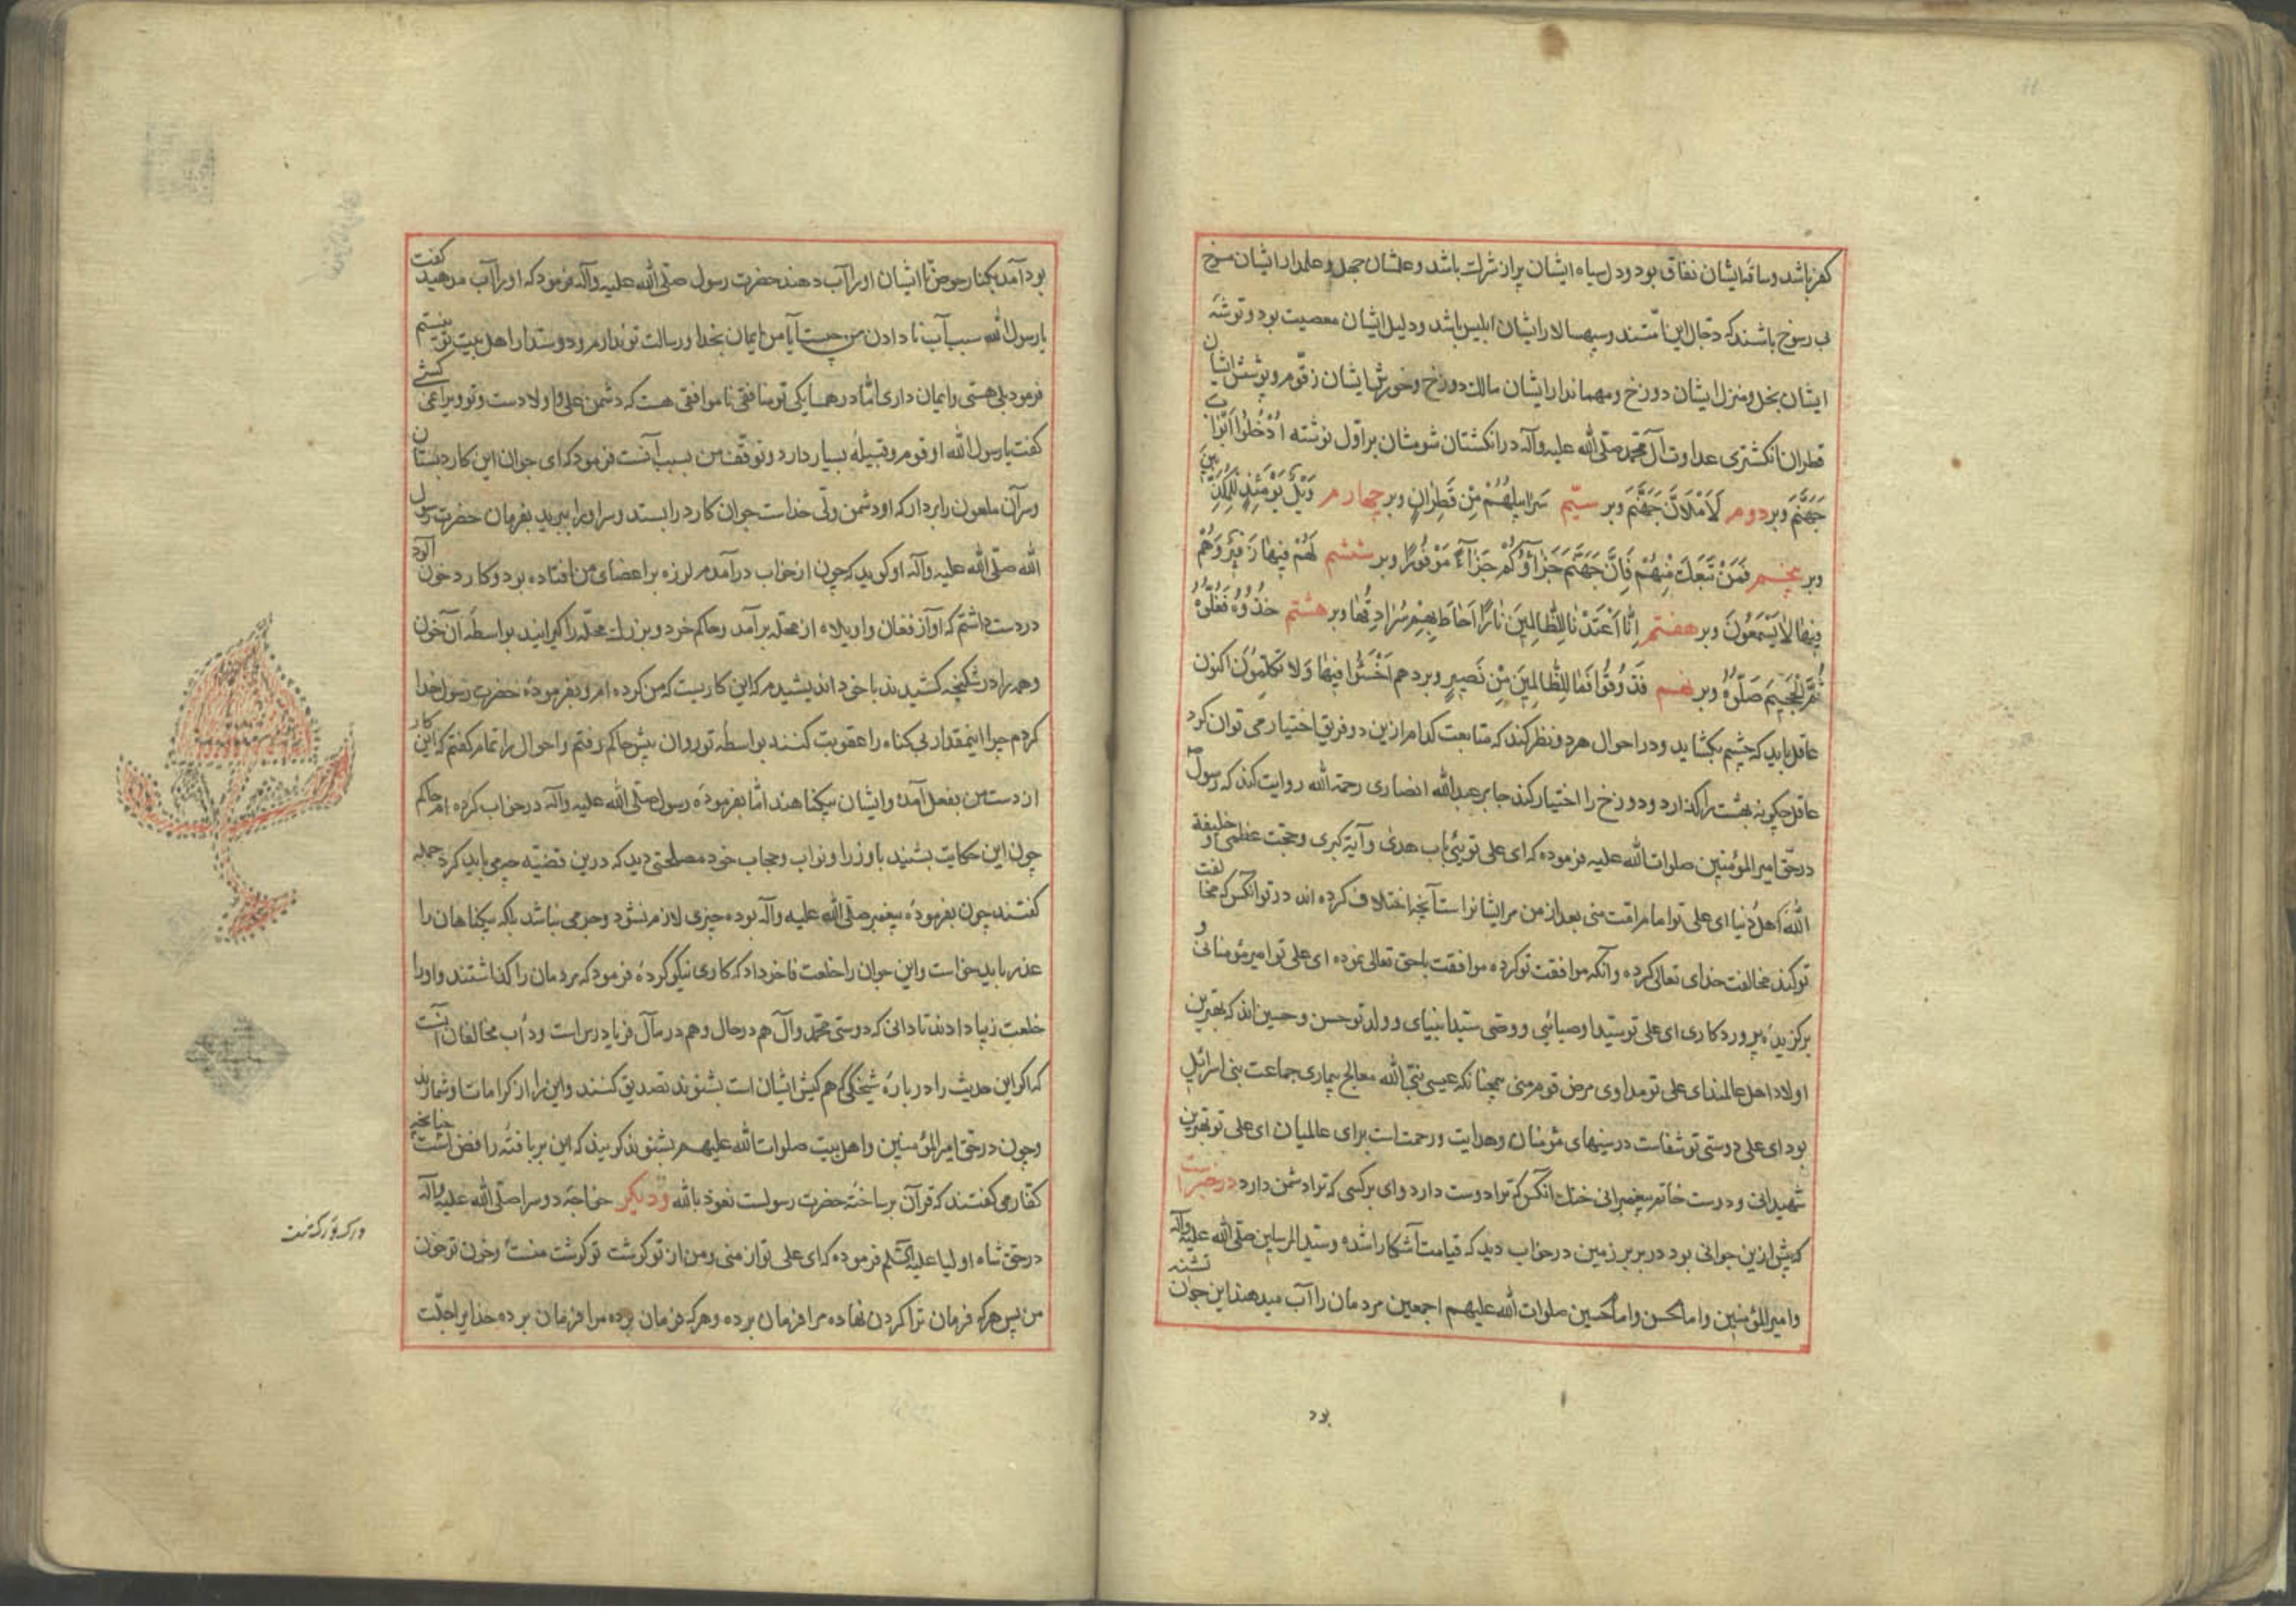 کفر باشد و ساقهٔ ایشان نفاق بود و دل سیاه ایشان پر از شرک باشد و علمشان جهل و علمدار ایشان
بی رسوخ باشند که دجّال این امّتند و سپهسالار ایشان ابلیس باشد و دلیل ایشان معصیت بود و توشهٔ
ایشان بخل و منزل ایشان دوزخ و مهماندار ایشان مالک دوزخ و خورش ایشان زقّوم و پوشش ایشان
قطران انکشتری عداوت آل محمّد صلّی الله علیه وآله در انکشتان شومشان بر اوّل نوشته اُدْخُلُوا اَبْوابَ
جَهَنَّمَ وبر دوم لَاَمْلَاَنَّ جَهَنَّمَ وبر سیّم سَرابیلُهُمْ مِنْ قَطِرانٍ وبر چهارم وَیْلٌ یَوْمَئِذٍ لِلْمُکَذِّبینَ
وبر پنجم فَمَنْ تَبِعَکَ مِنْهُمْ فَاِنَّ جَهَنَّمَ جَزاؤُکُمْ جَزاءً مَوْفُورًا وبر ششم لَهُمْ فیها زَفیرٌ وَهُمْ
فیها لا یَسْمَعُونَ وبر هفتم اِنّا اَعْتَدْنا لِلظّالِمینَ نارًا اَحاطَ بِهِمْ سُرادِقُها وبر هشتم خُذُوهُ فَغُلُّوهُ
ثُمَّ الْجَحیمَ صَلُّوهُ وبر نهم فَذُوقُوا فَما لِلظّالِمینَ مِنْ نَصیرٍ وبر دهم اخْسَئُوا فیها وَلا تُکَلِّمُونَ اکنون
عاقل باید که چشم بکشاید و در احوال هر دو نظر کند که متابعت کدام ازین دو فریق اختیار می توان کرد
عاقل چکونه بهشت را کذارد و دوزخ را اختیار کند جابر عبدالله انصاری رحمة الله روایت کند که رسول
در حقّ امیرالمؤمنین صلوات الله علیه فرموده که ای علی توئی باب هدی و آیة کبری و حجّت عظمی و خلیفة
الله اهل دنیا ای علی تو امام امّت منی بعد از من مر ایشانراست آنچه اختلاف کرده اند در تو آنکس که مخالفت
تو کند مخالفت خدای تعالی کرده و آنکه موافقت تو کرده موافقت با حق تعالی نموده ای علی تو امیر مؤمنانی و
برکزیدهٔ پروردکاری ای علی تو سیّد اوصیائی و وصی سیّد انبیای و ولد تو حسن و حسین اند که بهترین
اولاد اهل عالمند ای علی تو مداوی مرض قوم منی همچنانکه عیسی نبیّ الله معالج بیماری جماعت بنی اسرائیل
بود ای علی دوستی تو شفاست در سینهای مؤمنان و هدایت و رحمت است برای عالمیان ای علی تو بهترین
شهیدانی و دوست خاتم پیغمبرانی خنک آنکس که ترا دوست دارد و ای بر کسی که ترا دشمن دارد در خبر است
که پیش ازین جوانی بود در بربر زمین در خواب دید که قیامت آشکارا شده و سیّد المرسلین صلّی الله علیه وآله
و امیرالمؤمنین و امام حسن و امام حسین صلوات الله علیهم اجمعین مردمان را آب میدهند این جوان تشنه
بود
بود آمد بکنار حوض تا ایشان او را آب دهند حضرت رسول صلّی الله علیه وآله فرمود که او را آب مدهید کفت
یا رسول الله سبب آب نا دادن من چیست آیا من ایمان بخدا و رسالت تو ندارم و دوستدار اهل بیت تو نیستم
فرمود بلی هستی و ایمان داری امّا در همسایکی تو منافقی ناموافقی هست که دشمن علی و اولاد اوست و تو ویرا نمی کشی
کفت یا رسول الله او قوم و قبیلهٔ بسیار دارد و توقّف من بسبب آنست فرمود که ای جوان این کارد بستان
و سر آن ملعون را بردار که او دشمن ولی خداست جوان کارد را بستد و سر او را ببرید بفرمان حضرت رسول
الله صلّی الله علیه وآله او کوید که چون از خواب درآمدم لرزه بر اعضای من افتاده بود و کارد خون آلود
در دست داشتم که آواز فغان و اویلاه از محلّه برآمد و حاکم خرد و بزرک محلّه را کیرانید بواسطهٔ آن خون
و همه را در شکنجه کشیدند با خود اندیشیدم که این کاریست که من کرده ام و بفرمودهٔ حضرت رسول خدا
کردم چرا اینمقدار بی کناه را عقوبت کنند بواسطهٔ تو روان پیش حاکم رفتم و احوال را تمام کفتم که این کار
از دست من بفعل آمده و ایشان بیکناهند امّا بفرمودهٔ رسول صلّی الله علیه وآله در خواب کرده ام حاکم
چون این حکایت بشنید با وزرا و نواب و حجاب خود مصلحتی دید که درین قضیّه چه می باید کرد جمله
کفتند چون بفرمودهٔ پیغمبر صلّی الله علیه وآله بوده چیزی لازم نشود و جرمی نباشد بلکه بیکناهان را
عذر باید خواست و این جوان را خلعت فاخر داد که کاری نیکو کردهٔ فرمود که مردمان را کذاشتند و او را
خلعت زیبا دادند تا دانی که دوستی محمّد وآل هم در حال و هم در مآل فریادرس است و دأب مخالفان آنست
که اکر این حدیث را در بارهٔ شیخکی که هم کیش ایشان است بشنوند تصدیق کنند و این را از کرامات او شمارند
و چون در حقّ امیرالمؤمنین و اهل بیت صلوات الله علیهم بشنوند کویند که این بر بافتهٔ رافضی است چنانچه
کفّار می کفتند که قرآن بر ساختهٔ حضرت رسولست نعوذ بالله و دیکر خواجهٔ دو سرا صلّی الله علیه وآله
در حق شاه اولیا علیه السّلم فرموده که ای علی تو از منی و من از تو کوشت تو کوشت منست و خون تو خون
من پس هر که فرمان ترا کردن نهاده مرا فرمان برده و هر که فرمان برده مرا فرمان برده خدایرا جلّت